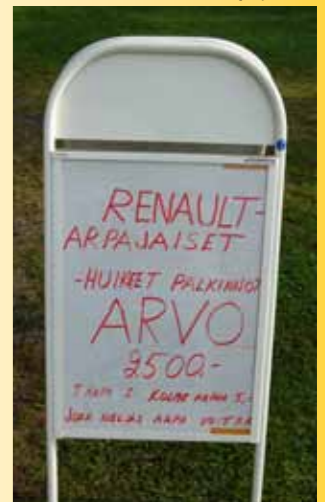 RENAULT-
ARPAJAISET
-HUIKEET PALKINNOT
ARVO
2500.-
KOLME ARPAA 5,-
JOKA NELJÄS ARPA VOITTAA